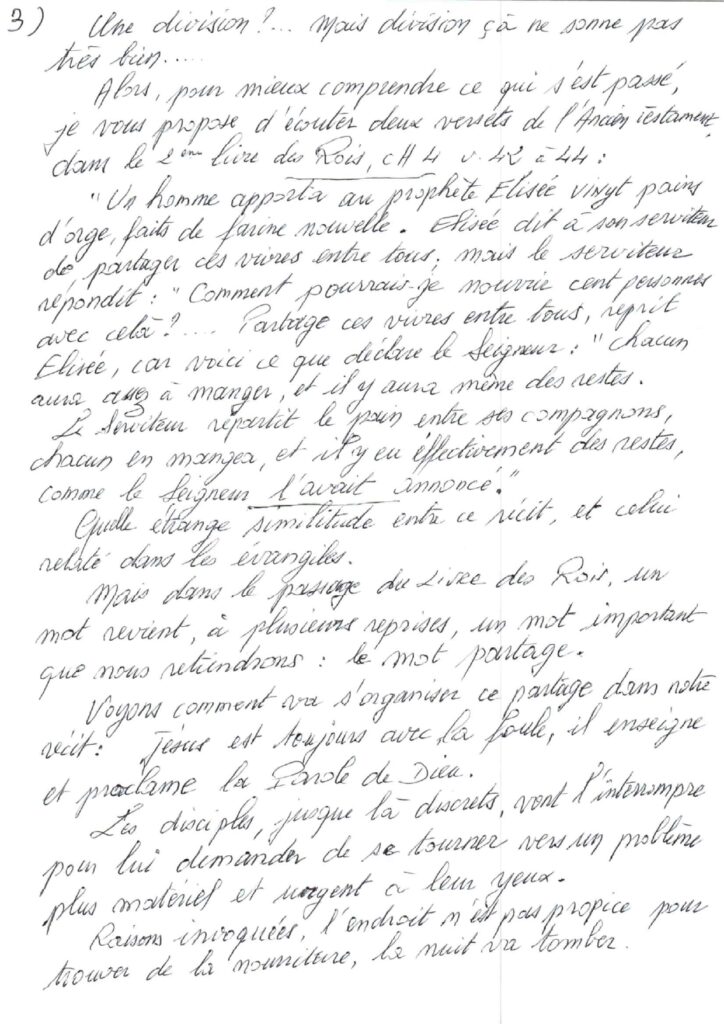 3) Une division?... Mais division çà ne sonne pas
très bien.....
Alors, pour mieux comprendre ce qui s'est passé,
je vous propose d'écouter deux versets de l'Ancien Testament,
dans le 2ème livre des Rois, cH 4 v. 42 à 44 :
"Un homme apporta au prophète Elisée vingt pains
d'orge, faits de farine nouvelle. Elisée dit à son serviteur
de partager ces vivres entre tous, mais le serviteur
répondit : "Comment pourrais-je nourrir cent personnes
avec celà?.... Partage ces vivres entre tous, reprit
Elisée, car voici ce que déclare le Seigneur : "chacun
aura assez à manger, et il y aura même des restes.
Le Serviteur répartit le pain entre ses compagnons,
chacun en mangea, et il y eu effectivement des restes,
comme le Seigneur l'avait annoncé."
Quelle étrange similitude entre ce récit, et celui
relaté dans les évangiles.
Mais dans le passage du Livre des Rois, un
mot revient, à plusieurs reprises, un mot important
que nous retiendrons : le mot partage.
Voyons comment va s'organiser ce partage dans notre
récit : Jésus est toujours avec la foule, il enseigne
et proclame la Parole de Dieu.
Les disciples, jusque là discrets, vont l'interrompre
pour lui demander de se tourner vers un problème
plus matériel et urgent à leur yeux.
Raisons invoquées, l'endroit n'est pas propice pour
trouver de la nourriture, la nuit va tomber.